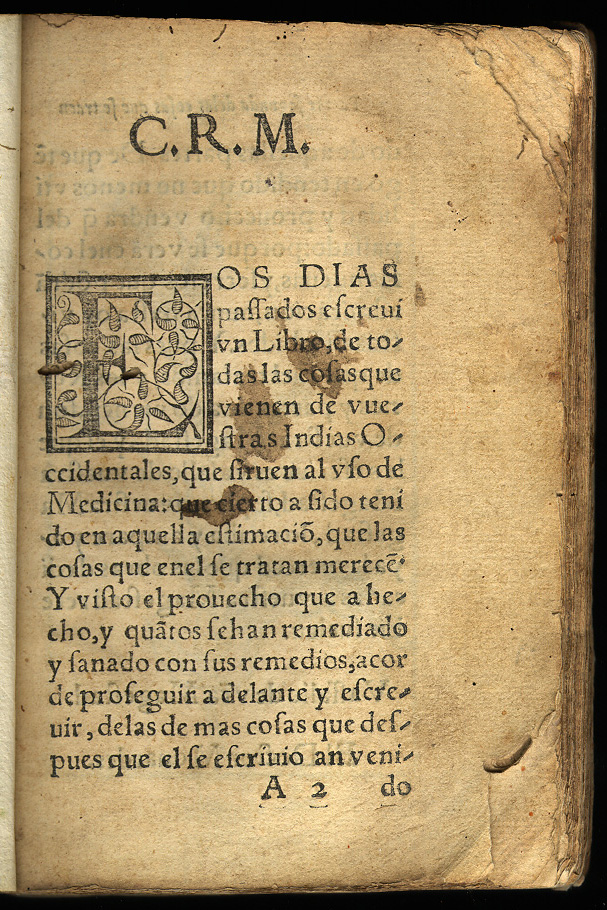 C.R.M.
EOS DIAS
paſſados eſcreui
vn Libro, de to-
das las coſas que
vienen de vue-
ſtras Indias O-
ccidentales, que ſiruen al vſo de
Medicina: que cierto a ſido teni
do en aquella eſtimaciõ, que las
coſas que enel ſe tratan merecẽ.
Y viſto el prouecho que a he-
cho, y quãtos ſe han remediado
y ſanado con ſus remedios, acor
de proſeguir a delante y eſcre-
uir, delas de mas coſas que deſ-
pues que el ſe eſcriuio an veni-
A 2 do